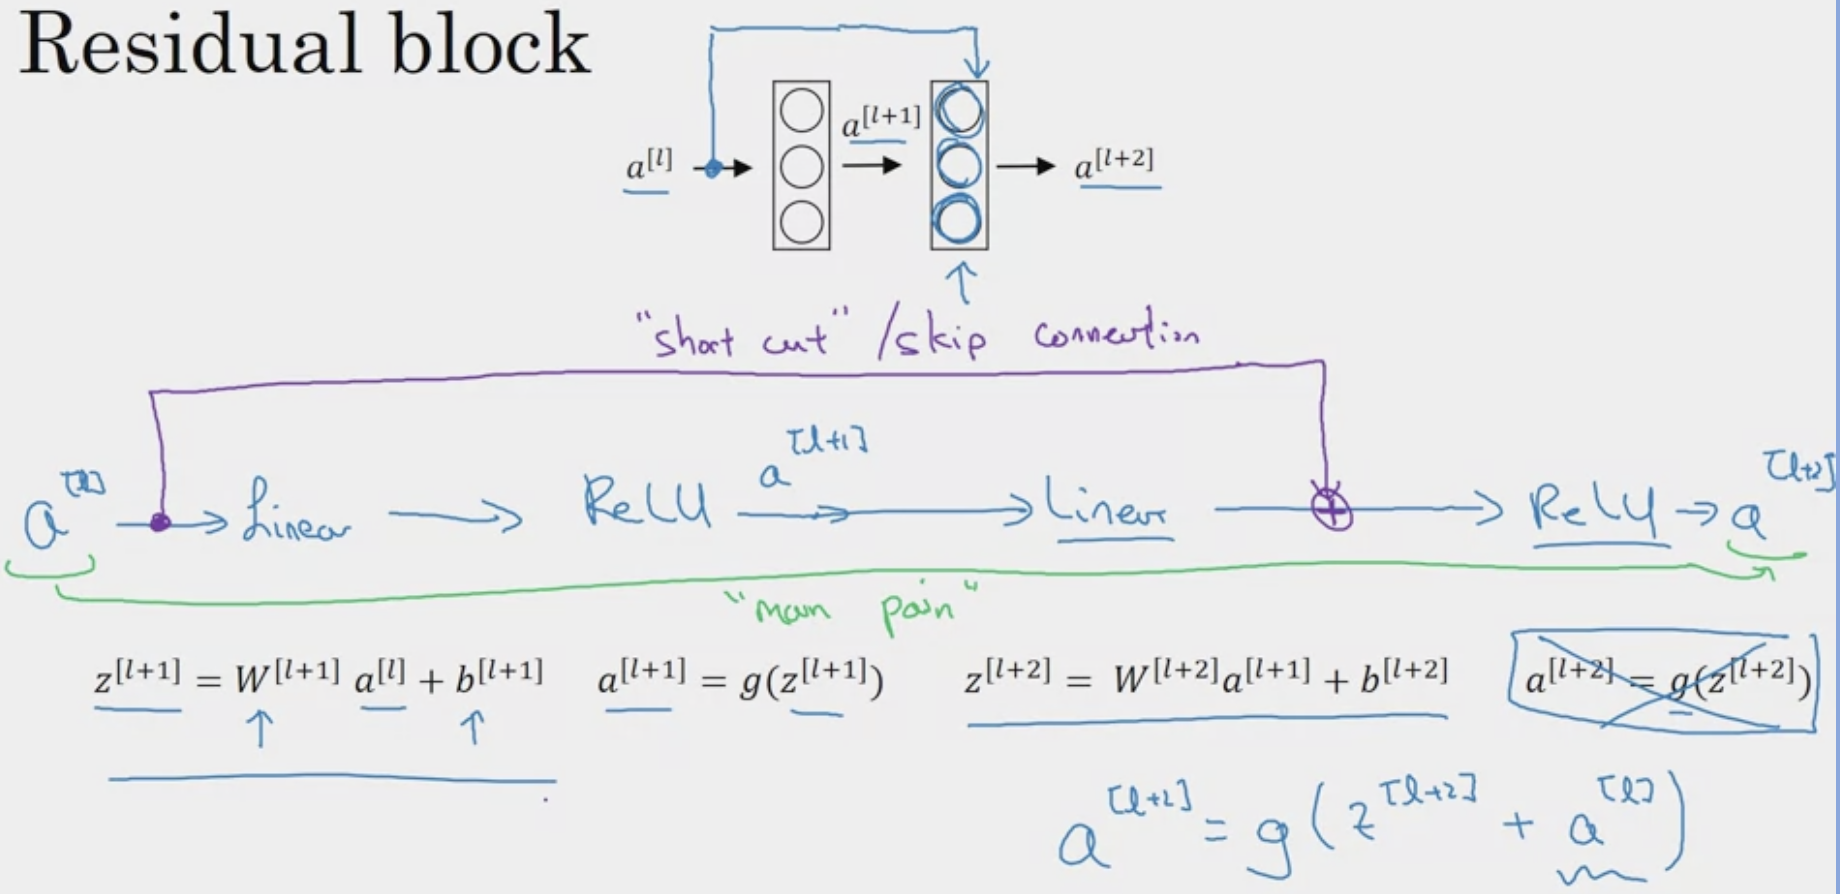 Residual block
a[l] a[l+1] a[l+2]
"short cut" / skip connection
a[l] → Linear → ReLU a[l+1] → Linear → ReLU → a[l+2]
"main pain"
z[l+1] = W[l+1] a[l] + b[l+1] a[l+1] = g(z[l+1]) z[l+2] = W[l+2]a[l+1] + b[l+2] a[l+2] = g(z[l+2])
a[l+2] = g(z[l+2] + a[l])